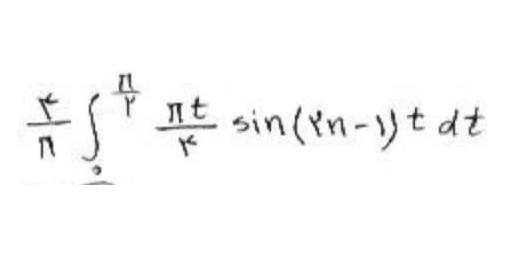 ۴/π ∫₀^(π/۲) πt/۴ sin(۲n-۱)t dt